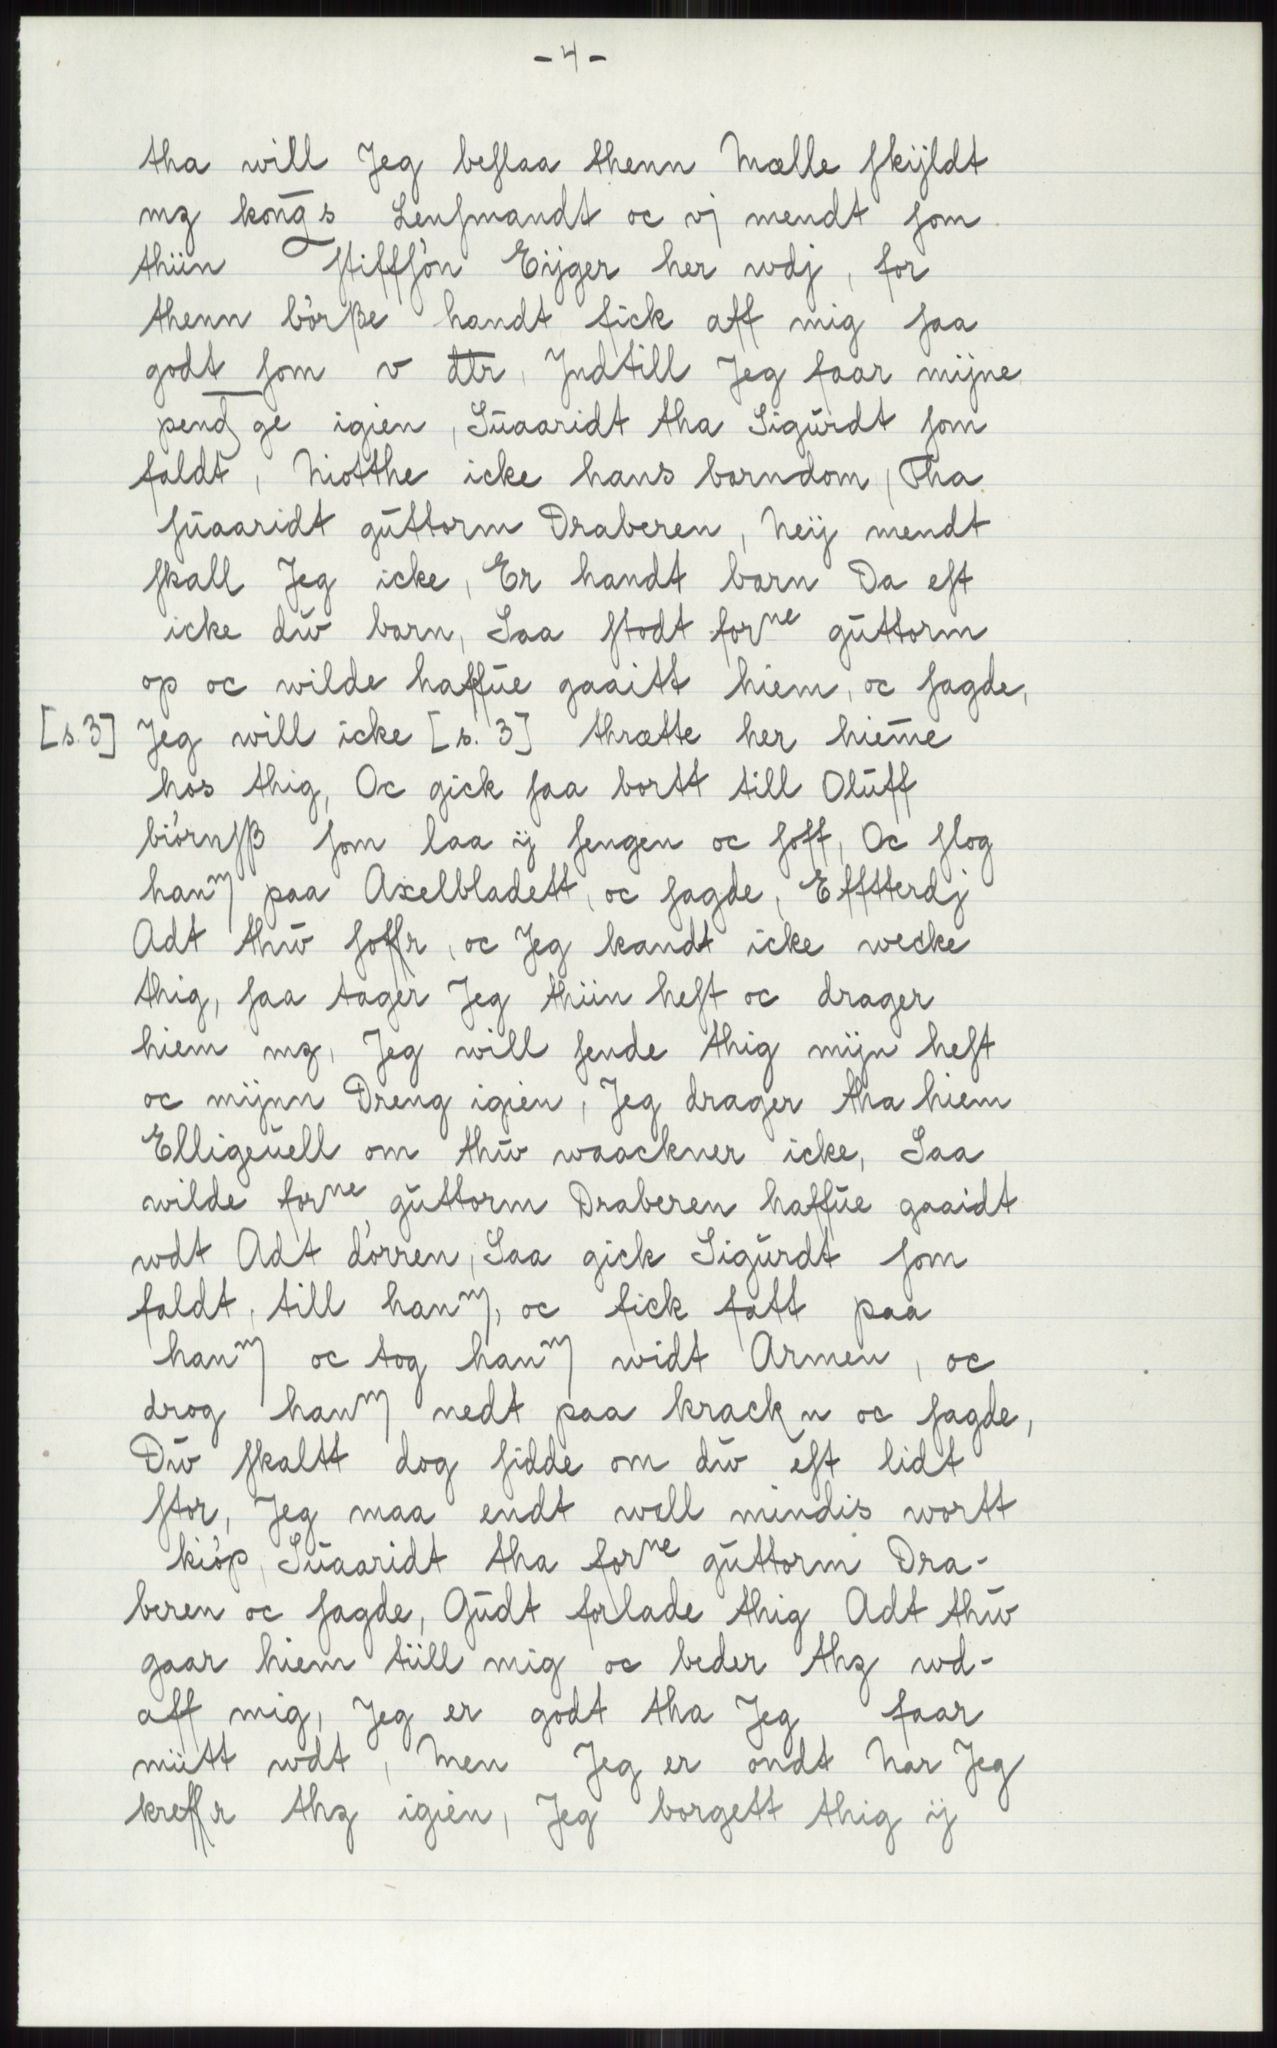 - 4 -
tha will Jeg beslaa thenn Mælle skijldt
mz kong̅s Lensmandt oc vj mendt som
thiin stiffsön Eijger her wdj, for
thenn börsze handt fick aff mig saa
godt som v dlr, Indtill Jeg faar mijne
pendge igien, Suaaridt tha Sigurdt som
faldt, Niotthe icke hans barndom, Tha
suaaridt guttorm Draberen, Neij mendt
skall Jeg icke, Er handt barn Da est
icke dw barn, Saa stodt forne guttorm
op oc wilde haffue gaaitt hiem, oc sagde,
[s. 3] Jeg will icke [s. 3] thrætte her hiem̅e
hos thig, Oc gick saa bortt till Oluff
biörnsß som laa ij sengen oc soff, Oc slog
hanm paa Axelbladett, oc sagde, Effterdj
Adt thw soffr, oc Jeg kandt icke wecke
thig, saa tager Jeg thiin hest oc drager
hiem mz, Jeg will sende thig mijn hest
oc mijnn Dreng igien, Jeg drager tha hiem
Elligeuell om thw waackner icke, Saa
wilde forne guttorm Draberen haffue gaaidt
wdt Adt dörren, Saa gick Sigurdt som
faldt, till hanm, oc fick fatt paa
hanm oc tog hanm widt Armen, oc
drog hanm nedt paa krackn oc sagde,
Dw skaltt dog sidde om dw est lidt
stor, Jeg maa endt well mindis wortt
kiöp, Suaaridt tha forne guttorm Dra-
beren oc sagde, Gudt forlade thig Adt thw
gaar hiem tiill mig oc beder thz wd-
aff mig, Jeg er godt tha Jeg faar
miitt wdt, Men Jeg er ondt Nar Jeg
kreffr thz igien, Jeg borgett thig ij